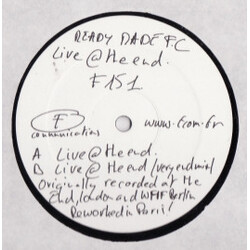 READY MADE F.C
Live @ the end.
F 151
F
communications
www.fcom.fr
A Live @ the end.
B Live @ the end / very end mix/
Originally recorded at the
End/London and WMF Berlin
Reworked in Paris!